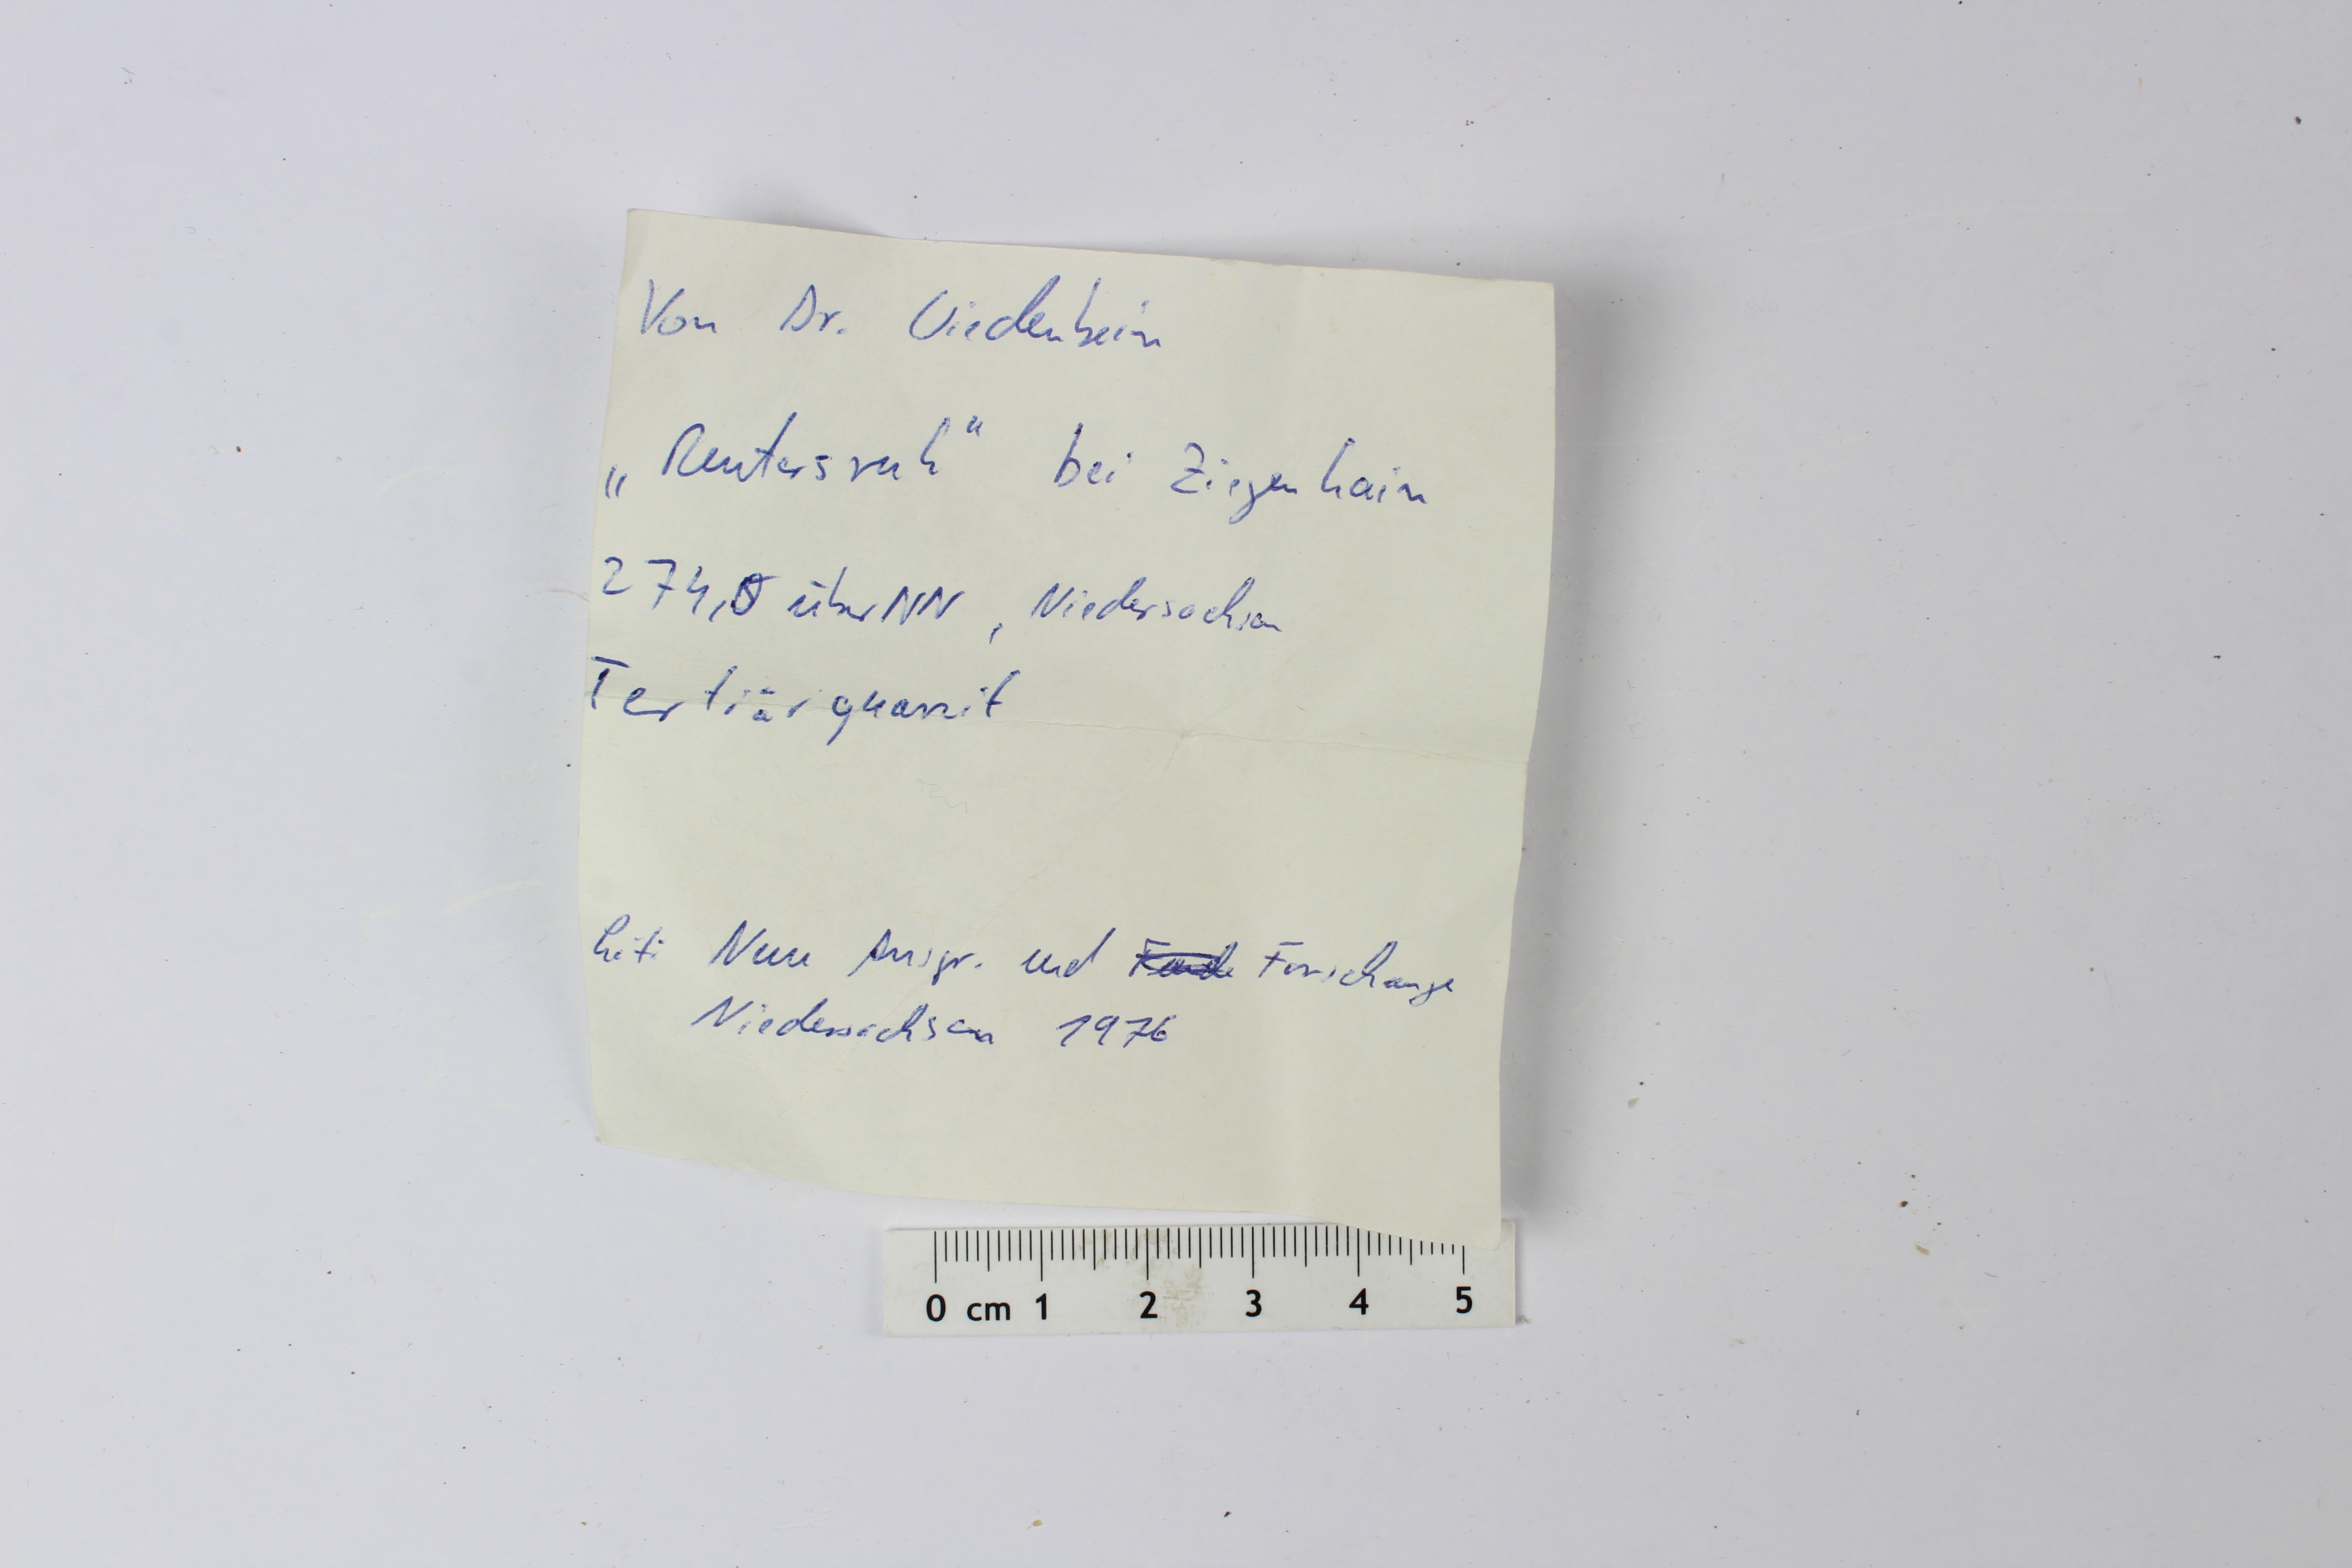 Von Dr. Viedenbein
„Reutersruh" bei Ziegenhain
274,5 über NN, Niedersachsen
Tertiärquarzit
Lit: Neue Ausgr. und Forschunge
Niedersachsen 1976
0 cm 1 2 3 4 5